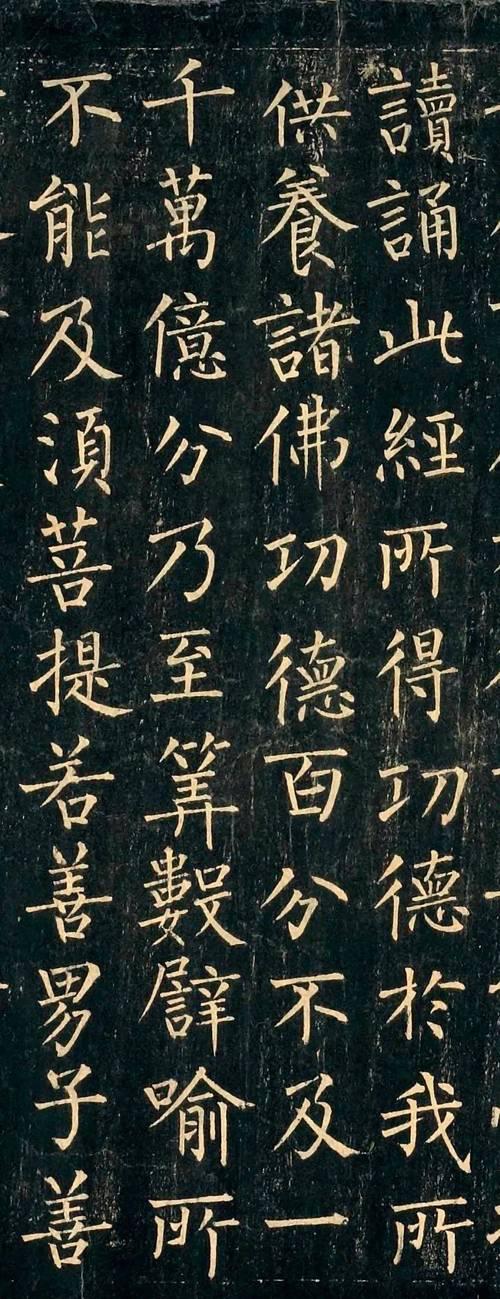 讀誦此經所得功德於我所
供養諸佛功德百分不及一
千萬億分乃至筭數譬喻所
不能及須菩提若善男子善